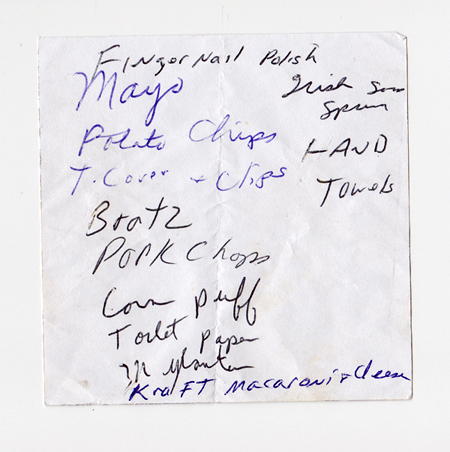 FingerNail Polish
Mayo
Potato Chips
T. Cover + Clips
Bratz
Pork Chops
Corn Puff
Toilet Paper
Kraft Macaroni + Cheese
Irish
Spring
HAND
Towels